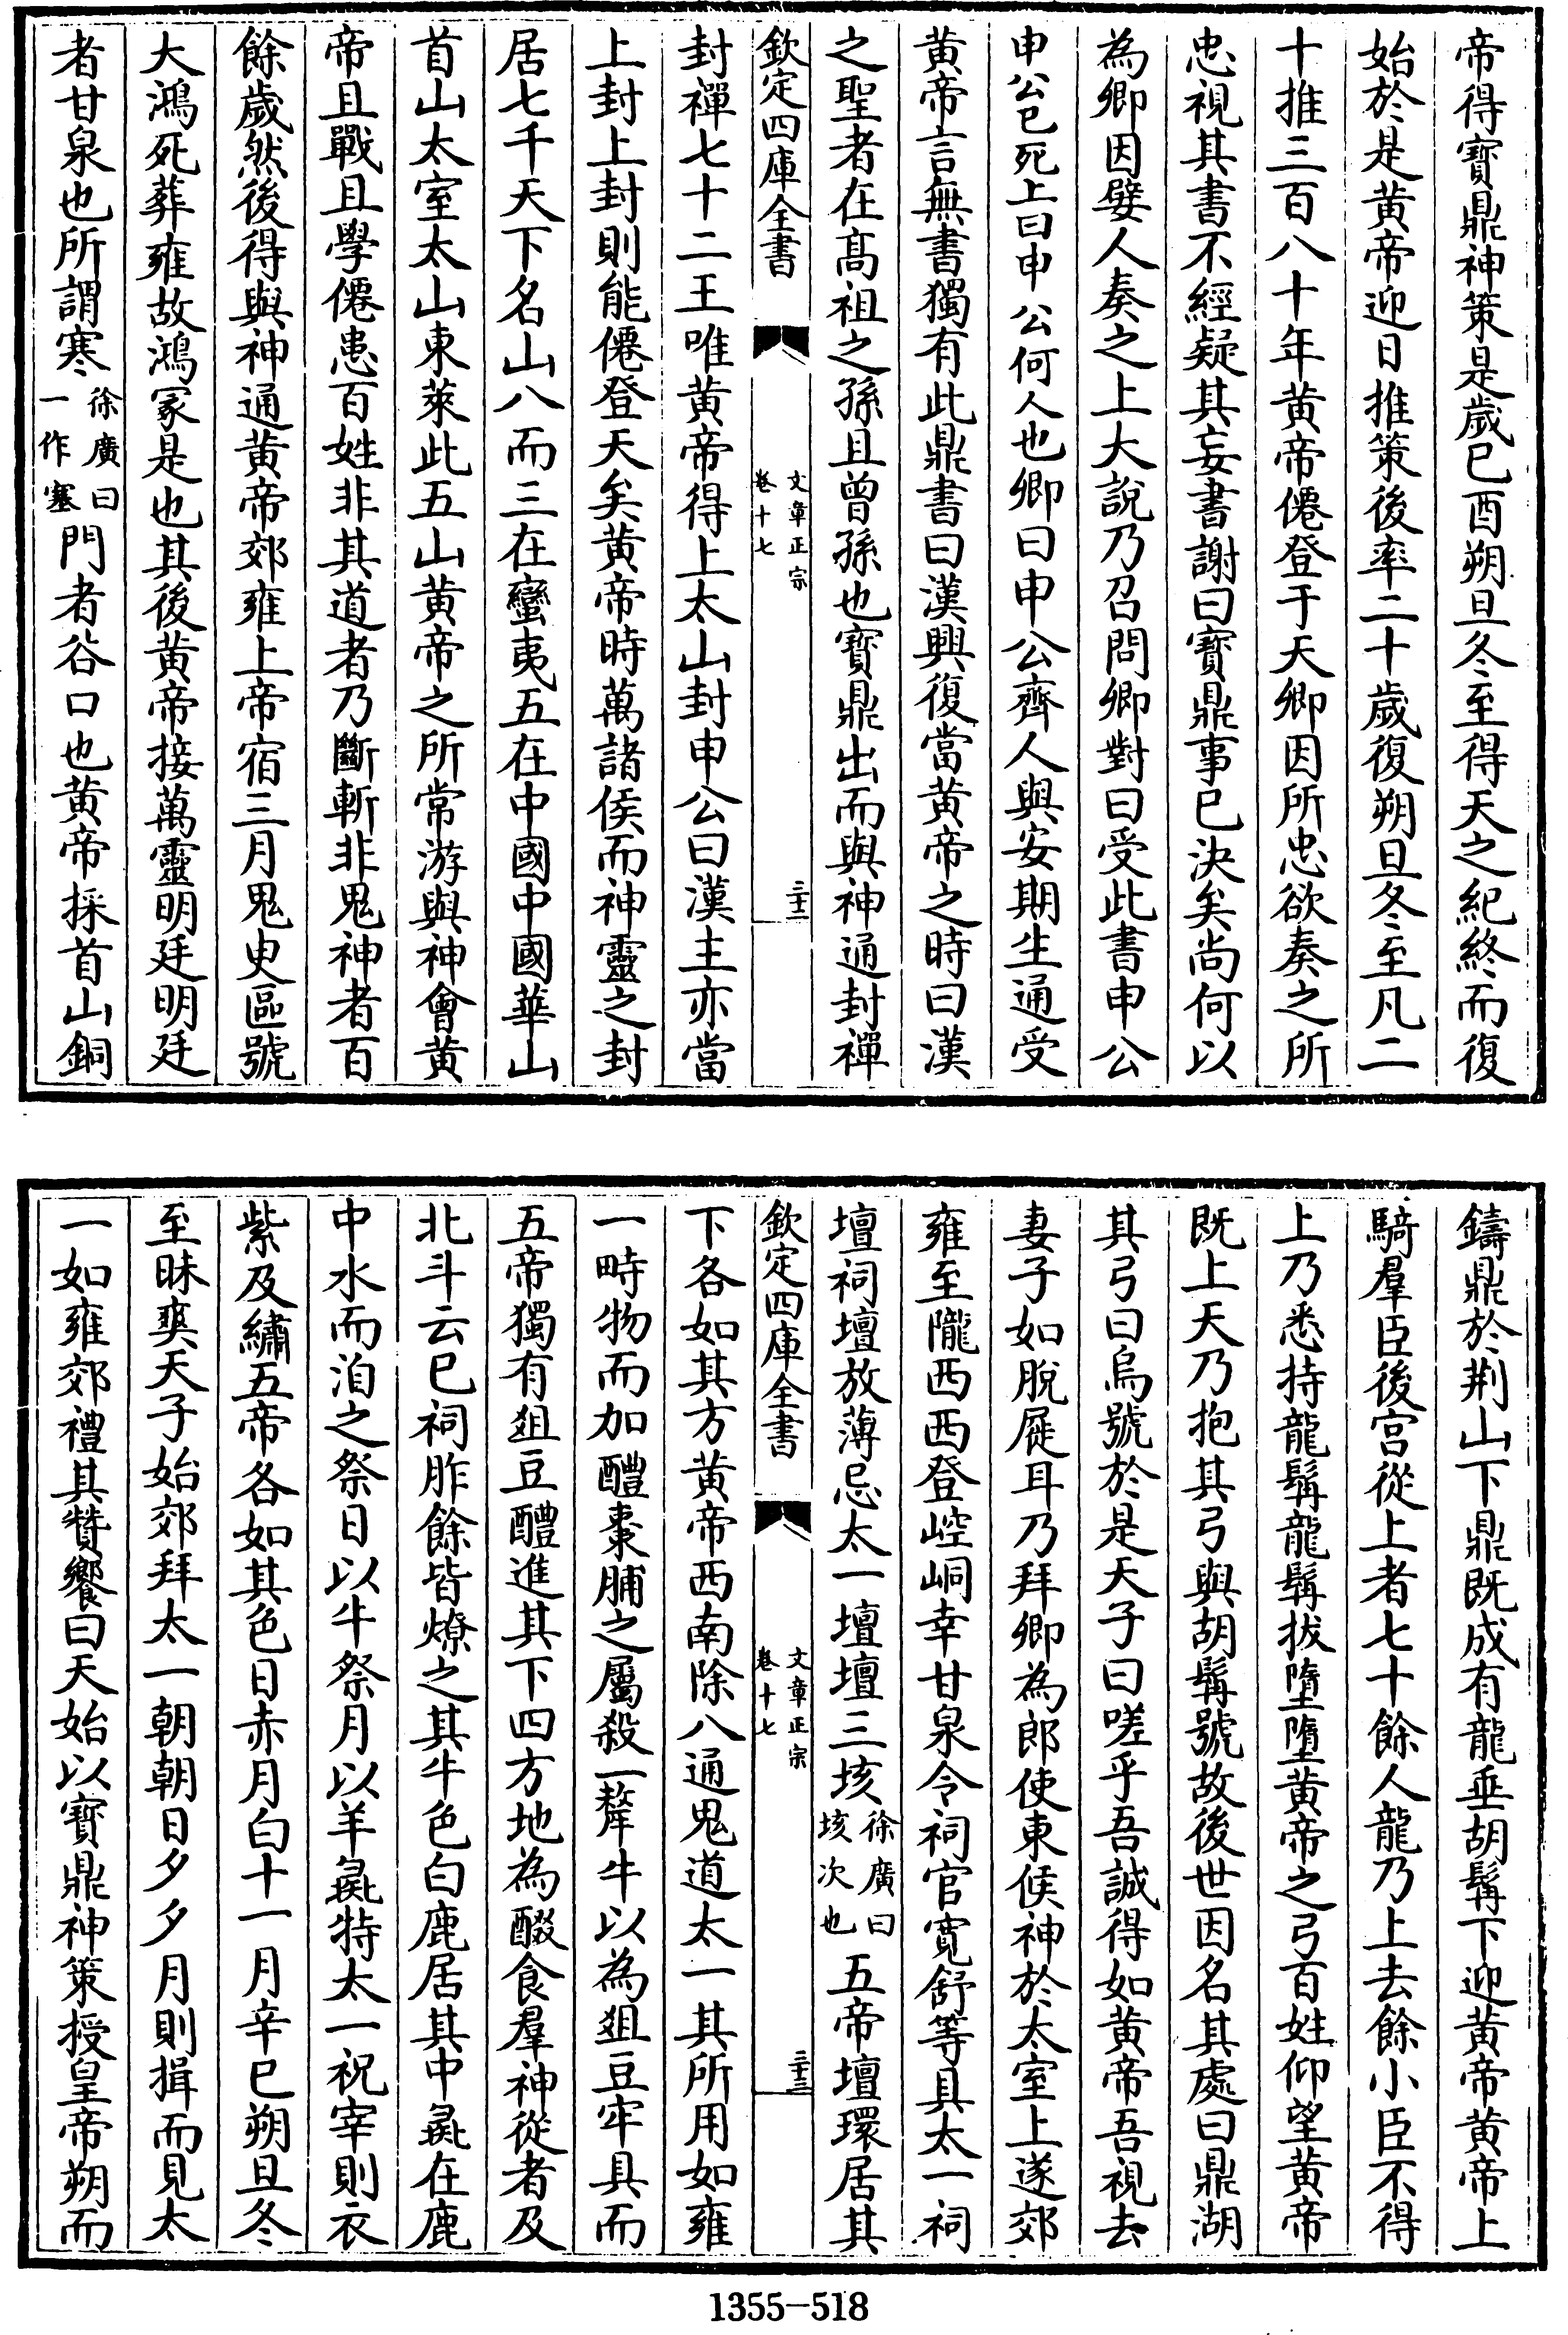 帝得寳鼎神策是歲已酉朔旦冬至得天之紀終而復
始於是黄帝迎日推策後率二十歲復朔旦冬至凡二
十推三百八十年黄帝僊登于天卿因所忠欲奏之所
忠視其書不經疑其妄書謝曰寳鼎事已決矣尚何以
為卿因嬖人奏之上大說乃召問卿對曰受此書申公
申公已死上曰申公何人也卿曰申公齊人與安期生通受
黄帝言無書獨有此鼎書曰漢興復當黄帝之時曰漢
之聖者在髙祖之孫且曽孫也寳鼎出而與神通封禪
欽定四庫全書
文章正宗
卷十七
三十二
封禪七十二王唯黄帝得上太山封申公曰漢主亦當
上封上封則能僊登天矣黄帝時萬諸侯而神靈之封
居七千天下名山八而三在蠻夷五在中國中國華山
首山太室太山東萊此五山黄帝之所常游與神會黄
帝且戰且學僊患百姓非其道者乃斷斬非鬼神者百
餘歲然後得與神通黄帝郊雍上帝宿三月鬼臾區號
大鴻死葬雍故鴻冢是也其後黄帝接萬靈明廷明廷
者甘泉也所謂寒徐廣曰一作塞門者谷口也黄帝採首山銅
鑄鼎於荆山下鼎既成有龍垂胡髯下迎黄帝黄帝上
騎羣臣後宫從上者七十餘人龍乃上去餘小臣不得
上乃悉持龍髯龍髯拔墮墮黄帝之弓百姓仰望黄帝
既上天乃抱其弓與胡髯號故後世因名其處曰鼎湖
其弓曰烏號於是天子曰嗟乎吾誠得如黄帝吾視去
妻子如脫屣耳乃拜卿為郎使東候神於太室上遂郊
雍至隴西西登崆峒幸甘泉令祠官寛舒等具太一祠
壇祠壇放薄忌太一壇壇三垓徐廣曰垓次也五帝壇環居其
欽定四庫全書
文章正宗
卷十七
三十三
下各如其方黄帝西南除八通鬼道太一其所用如雍
一畤物而加醴棗脯之屬殺一犛牛以為俎豆牢具而
五帝獨有俎豆醴進其下四方地為醊食羣神從者及
北斗云已祠胙餘皆燎之其牛色白鹿居其中彘在鹿
中水而洎之祭日以牛祭月以羊彘特太一祝宰則衣
紫及繡五帝各如其色日赤月白十一月辛巳朔旦冬
至昧爽天子始郊拜太一朝朝日夕夕月則揖而見太
一如雍郊禮其贊饗曰天始以寳鼎神策授皇帝朔而
1355—518